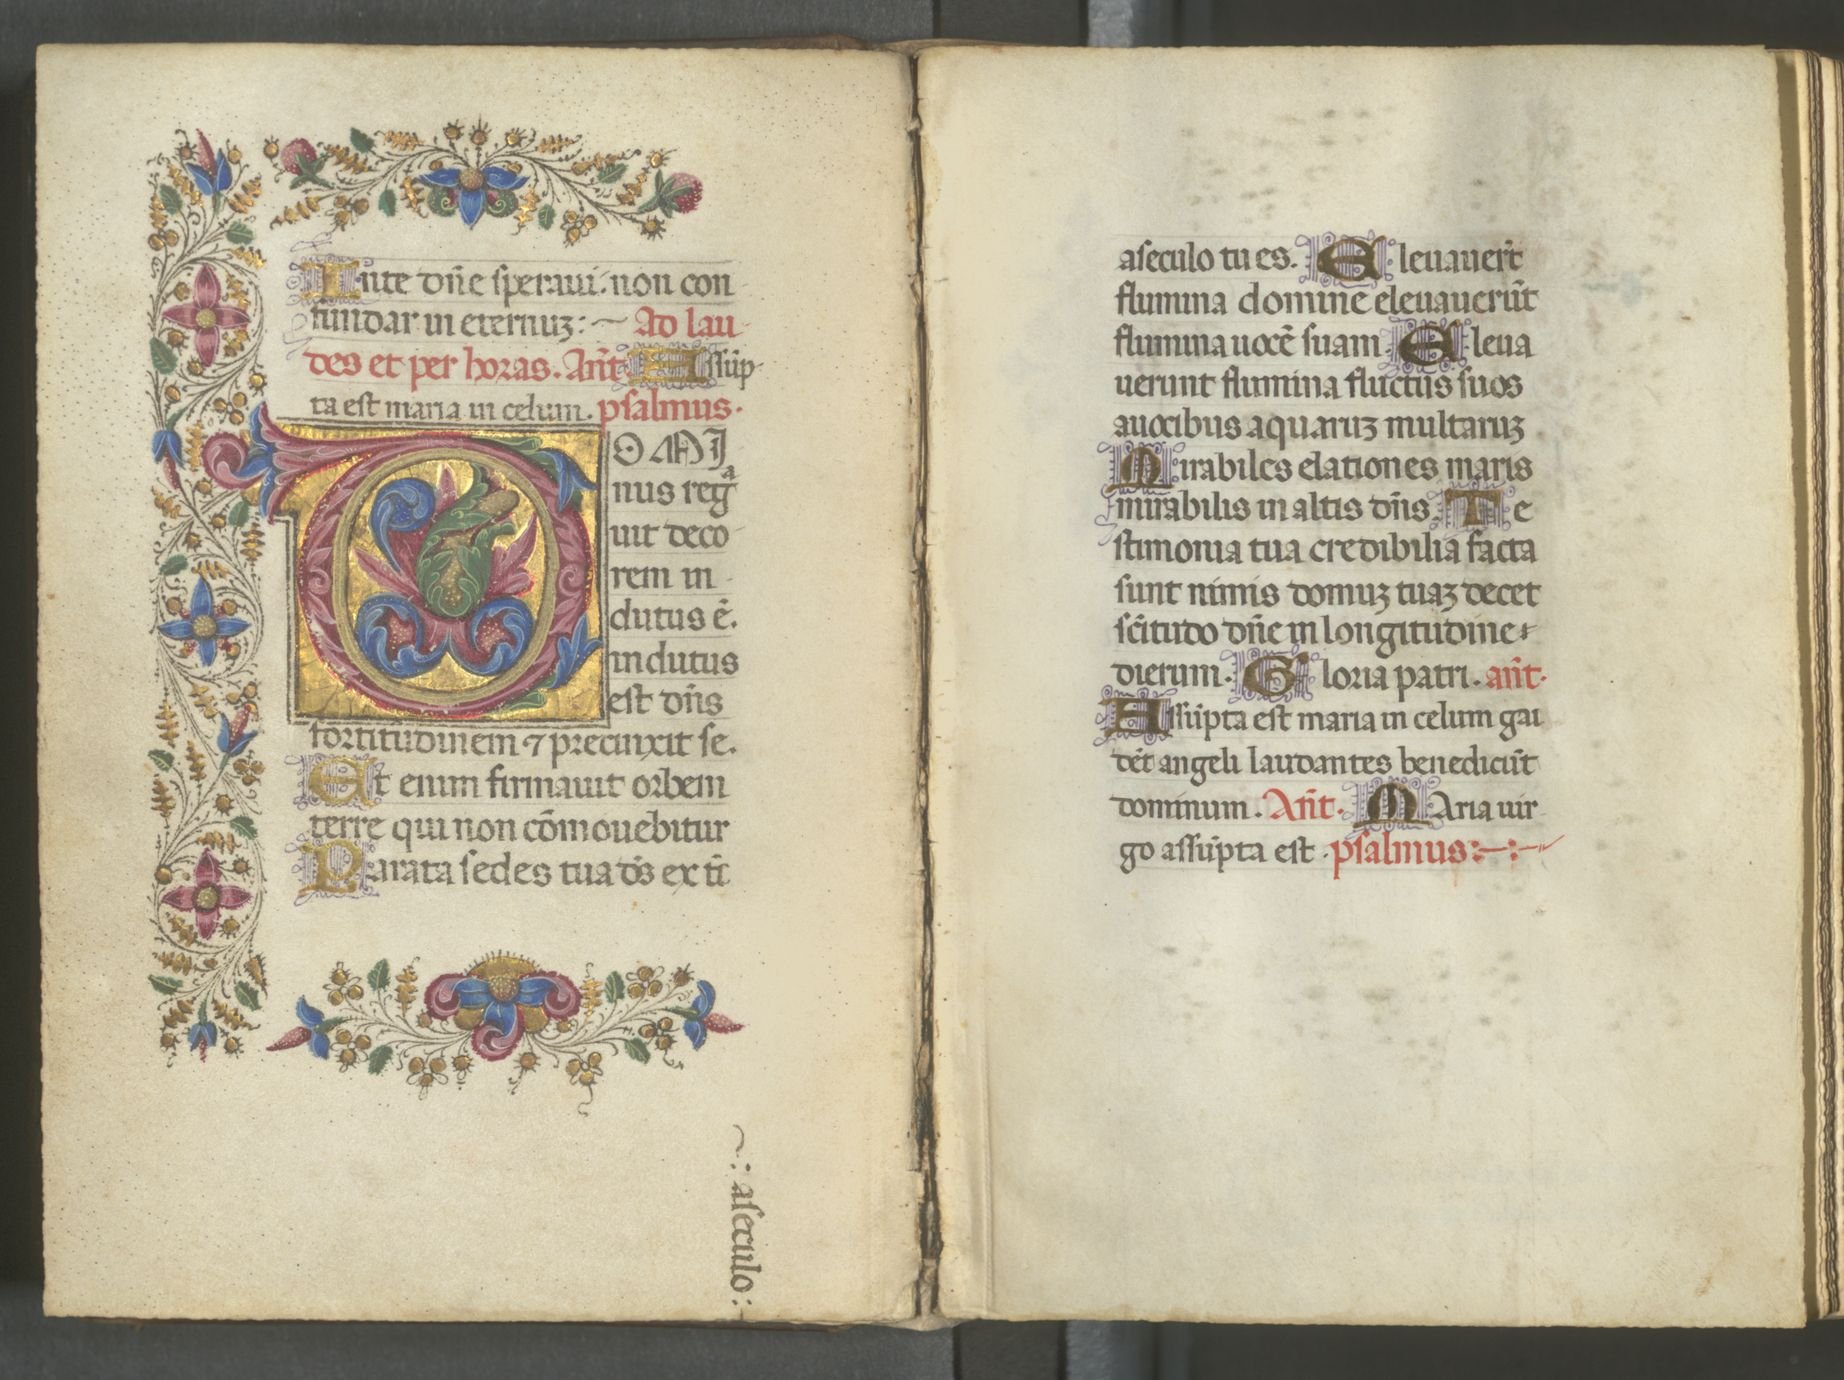 In te dn̄e speraui. non con
fundar in eternuꝫ: ~ Ad lau
des et per horas. An̄t Assūp
ta est maria in celum. psalmus.
DOMI
nus regᵃ
uit deco
rem in
dutus ē.
indutus
est dn̄s
fortitudinem ⁊ precinxit se.
Et enim firmauit orbem
terre qui non cōmouebitur
Parata sedes tua ds̄ ex tc̄
~: aseculo:
aseculo tu es. Eleuauer̄t
flumina domine eleuauerūt
flumina uocē suam Eleua
uerunt flumina fluctus suos
auocibus aquaruꝫ multaruꝫ
Mirabiles elationes maris
mirabilis in altis dn̄s. Te
stimonia tua credibilia facta
sunt nimis domuꝫ tuaꝫ decet
sc̄itudo dn̄e in longitudine
dierum. Gloria patri. an̄t.
Assūpta est maria in celum gau
dēt angeli laudantes benedicūt
dominum. An̄t. Maria uir
go assūpta est. psalmus:~:~